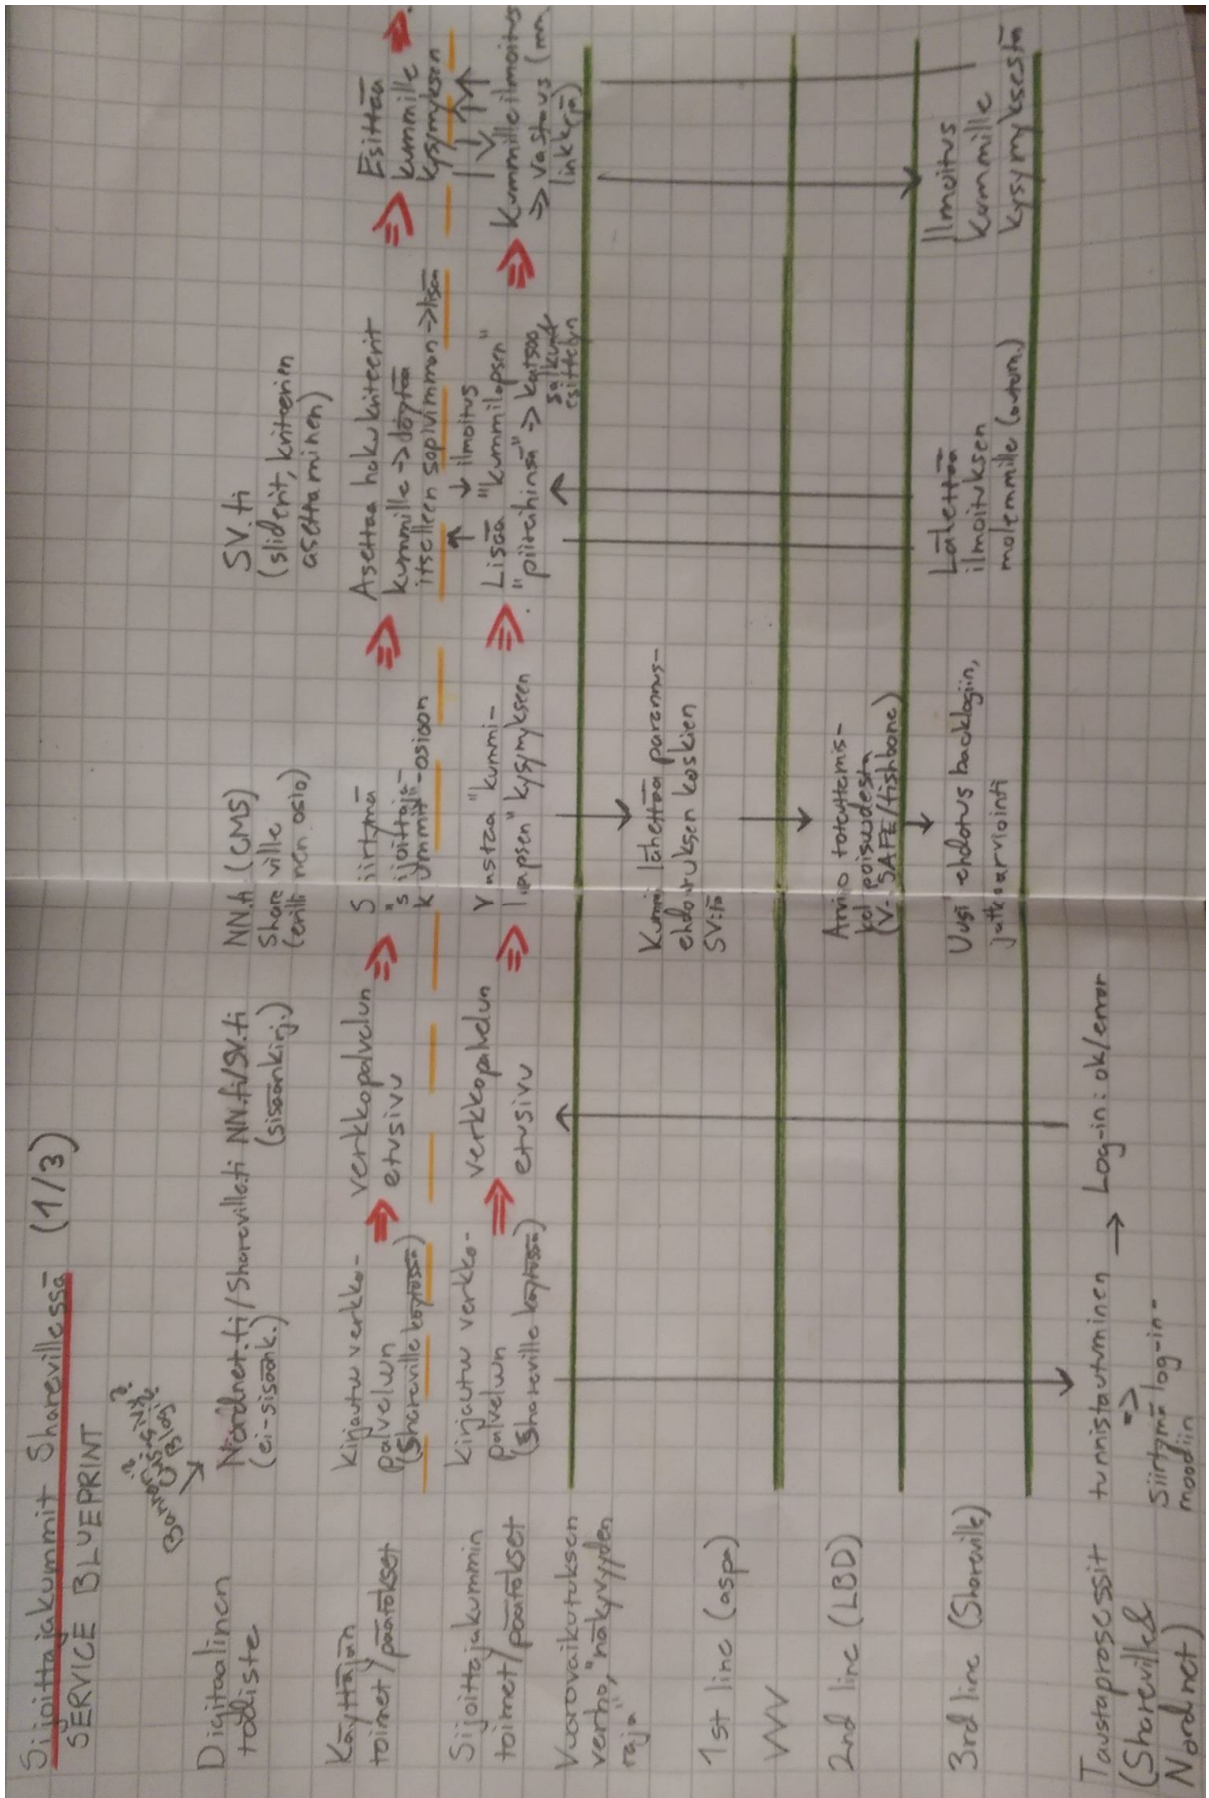 Sijoittajakummit Sharevillessä (1/3)
SERVICE BLUEPRINT
Digitaalinen
todiste
Nordnet.fi/Shareville.fi
(ei-sisäänk.)
NN.fi/SV.fi
(sisäänkirj.)
NN.fi (CMS)
Shareville
(erillinen osio)
SV.fi
(sliderit, kriteerien
asettaminen)
Käyttäjän
toimet/päätökset
Kirjautuu verkko-
palveluun
(Shareville käytössä)
verkkopalvelun
etusivu
Siirtymä
"sijoittaja-
kummit"-osioon
Asettaa hakukriteerit
kummille -> löytää
itselleen sopivimman -> lisää
Esittää
kummille
kysymyksen
Sijoittajakummin
toimet/päätökset
Kirjautuu verkko-
palveluun
(Shareville käytössä)
verkkopalvelun
etusivu
Vastaa "kummi-
lapsen" kysymykseen
ilmoitus
Lisää "kummilapsen"
"piireihinsä" -> katsoo
salkun
esittelyn
Kummille ilmoitus
=> vastaus (mm.
linkkejä)
Vuorovaikutuksen
verho, "näkyvyyden
raja"
1st line (aspa)
Kummi lähettää parannus-
ehdotuksen koskien
SV:tä
VVV
2nd line (LBD)
Arvio toteuttamis-
kelpoisuudesta
(V-SAFE/fishbone)
3rd line (Shareville)
Uusi ehdotus backlogiin,
jatkoarviointi
Lähettää
ilmoituksen
molemmille (autom.)
Ilmoitus
kummille
kysymyksestä
Taustaprosessit
(Shareville &
Nordnet)
tunnistautuminen → Log-in: ok/error
=>
Siirtymä log-in-
moodiin